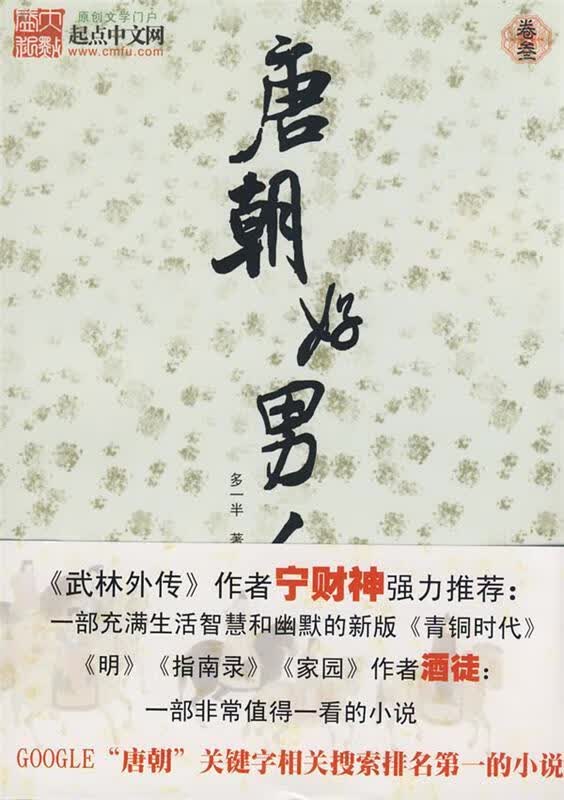 原创文学门户
起点中文网
www.cmfu.com
卷叁
唐朝好男人
多一半 著
《武林外传》作者宁财神强力推荐：
一部充满生活智慧和幽默的新版《青铜时代》
《明》《指南录》《家园》作者酒徒：
一部非常值得一看的小说
GOOGLE“唐朝”关键字相关搜索排名第一的小说